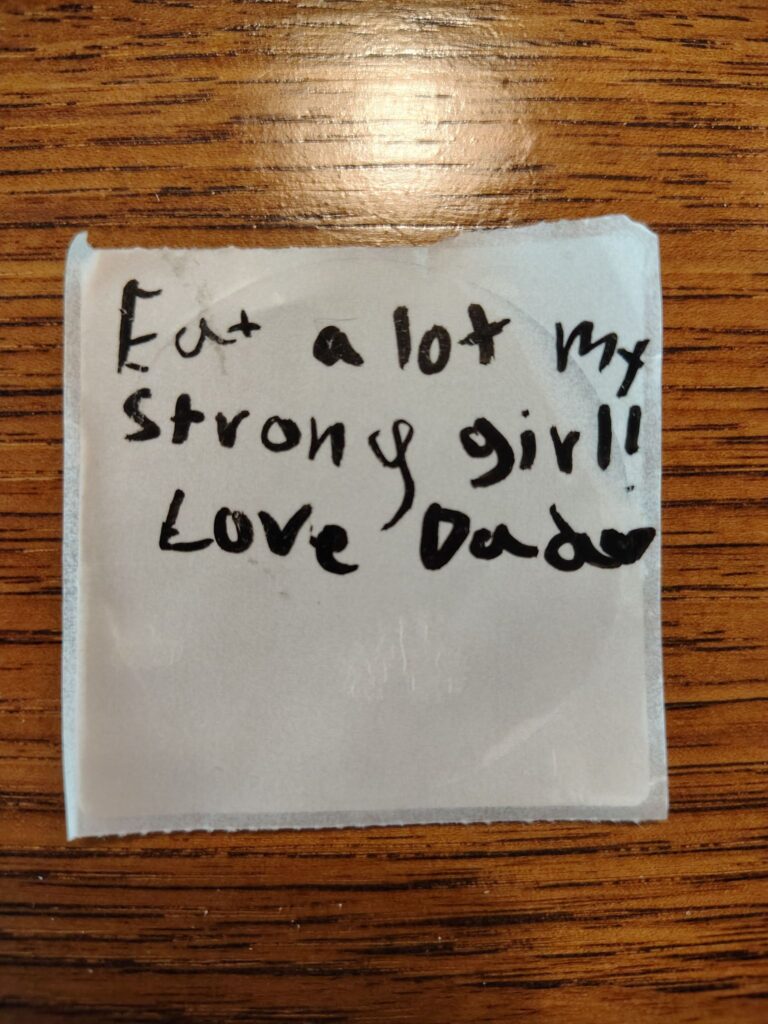 Eat a lot my
strong girl!
Love Dad♥